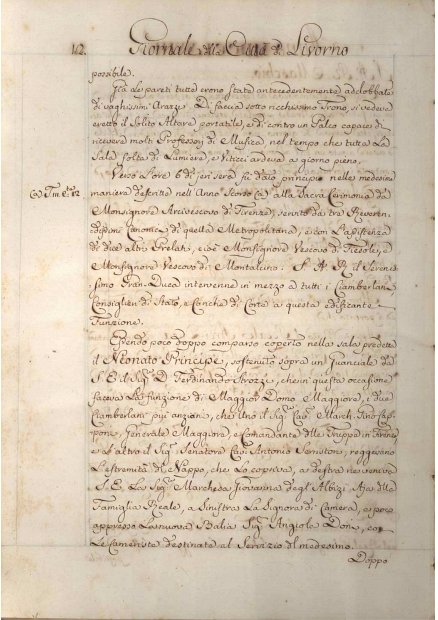 12. Giornale dell Città di Livorno
possibile.
Già le pareti tutte erono state antecedentemente addobbate
di vaghissimi Arazzi. In faccia sotto ricchissimo Trono, si vedeva
eretto il Solito Altare portatile, e di contro un Palco capace di
ricevere molti Professori di Musica nel tempo che tutta la
Sala folta di Lumiere, e Viticci ardeva a giorno pieno.
Verso l'ore 6 di jeri sera fu dato principio nelle medesime
maniere descritte nell'Anno scorso (a) alla Sacra Cerimonia da
(a) Tm. 12
Monsignore Arcivescovo di Firenze, servito da tre Reveren-
dissimi Canonici di quella Metropolitana, e con l'assistenza
di due altri Prelati, cioè Monsignore Vescovo di Fiesole, e
Monsignore Vescovo di Montalcino. S. A. R. il Serenis-
simo Gran-Duca intervenne in mezzo a tutti i Ciamberlani,
Consiglieri di Stato, e Cariche di Corte a questa edificante
Funzione.
Essendo poco doppo comparso coperto nella sala predetta
il Neonato Principe, sostenuto sopra un Guanciale da
S. E. il Sig. D. Ferdinando Strozzi, che in questa occasione
faceva la funzione di Maggior Domo Maggiore, i due
Ciamberlani più anziani, che uno il Sig. Cav. March. Gino Cap-
poni, Generale Maggiore, e Comandante delle Truppe in Firenze
e l'altro il Sig. Senatore Cav. Antonio Serristori, reggevano
l'estremità di Nappo, che lo copriva, a destra ne veniva
S. E. la Sig. Marchesa Giovanna degl'Albizi Aja della
Famiglia Reale, a Sinistra la Signora di Camera, e poco
appresso la nuova Balia Sig. Angiola Doni, con
le Cameriste destinate al Servizio del medesimo.
Doppo